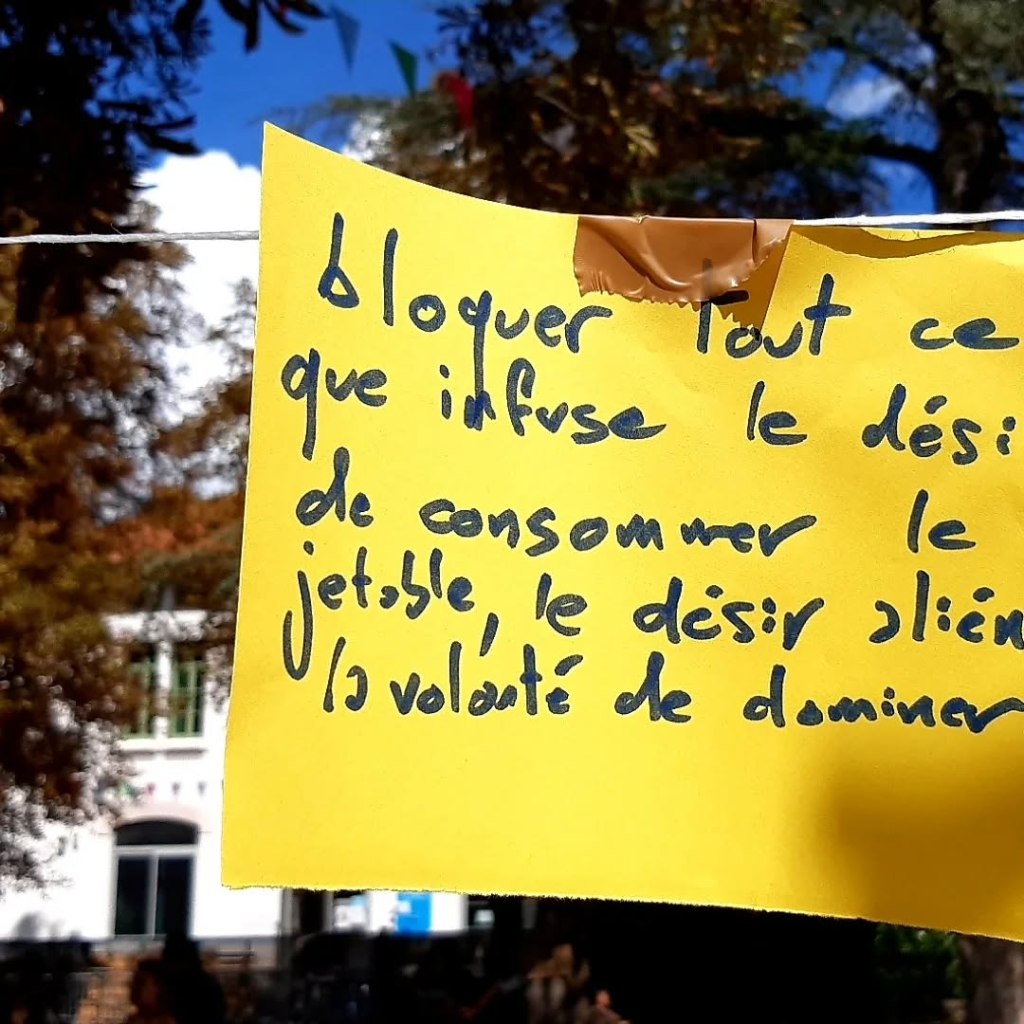 bloquer tout ce
que infuse le dési
de consommer le
jetable, le désir alién
la volonté de dominer